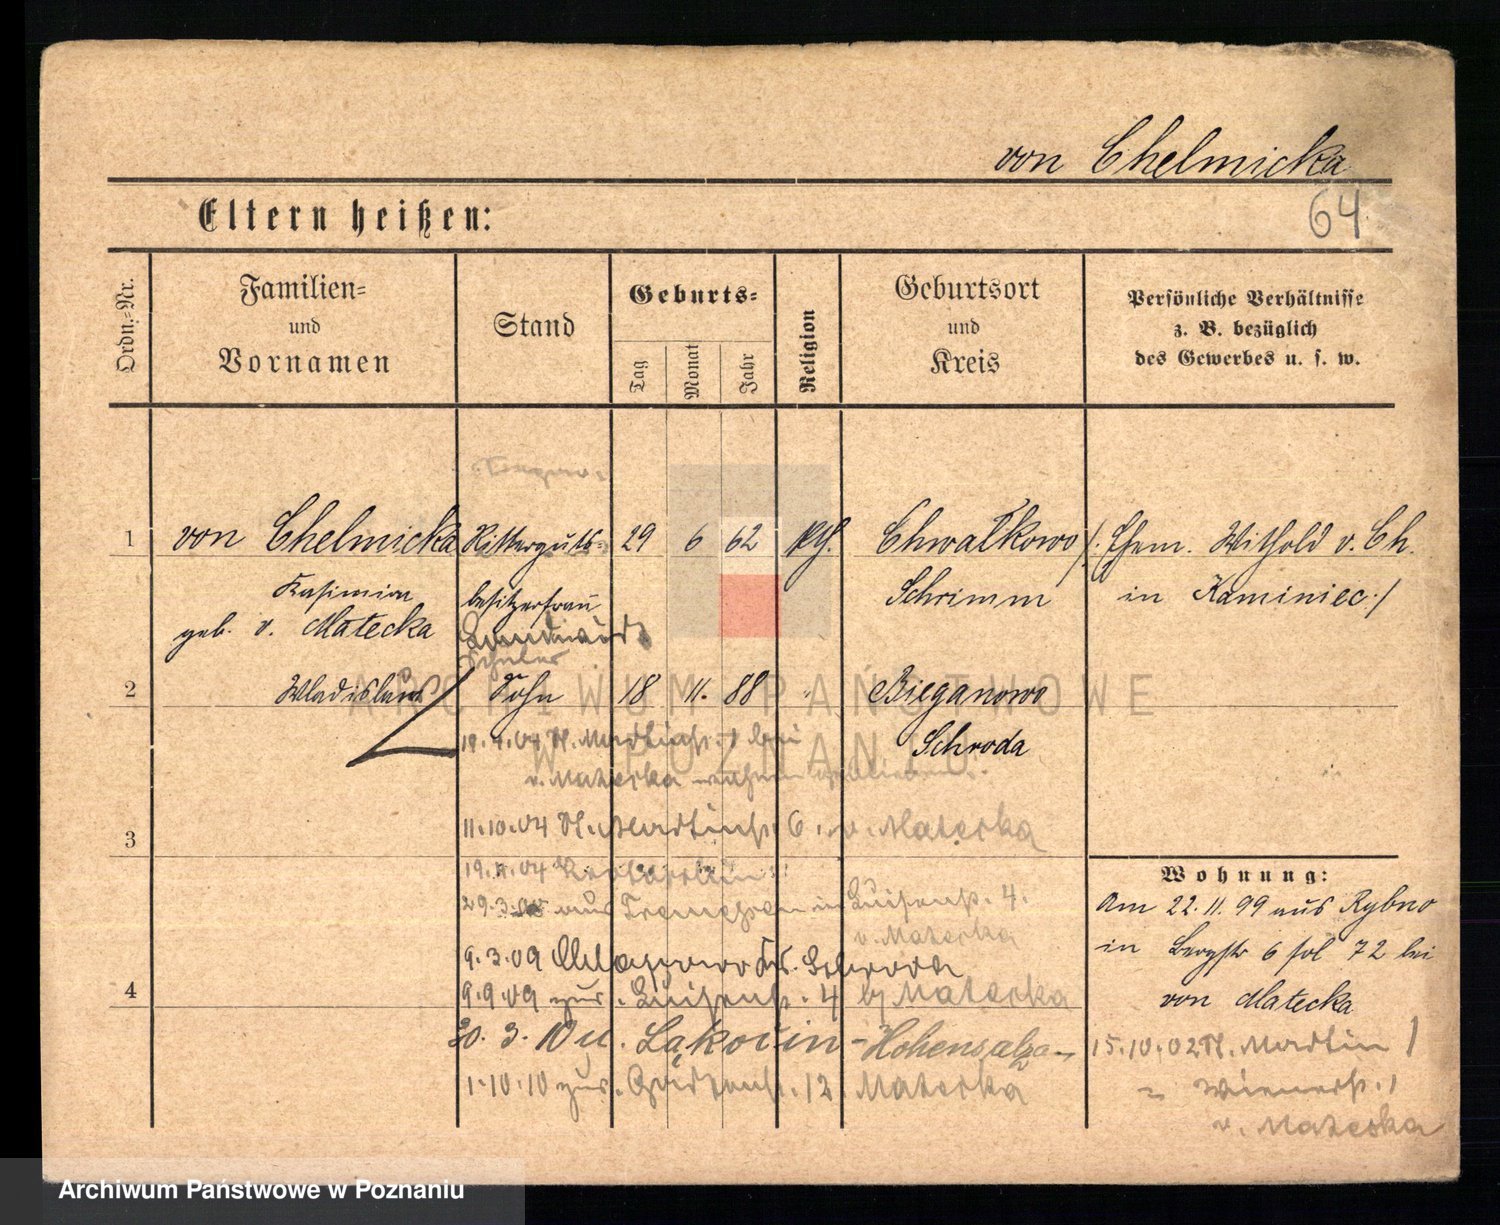 von Chelmicka
64
Eltern heißen:
Ordn.-Nr.
Familien-
und
Vornamen
Stand
Geburts-
Tag
Monat
Jahr
Religion
Geburtsort
und
Kreis
Persönliche Verhältnisse
z. B. bezüglich
des Gewerbes u. s. w.
1 von Chelmicka Ritterguts- 29 6 62 kth. Chwałkowo /. Ehem. Withold v. Ch.
Kasimira besitzerfrau Schrimm in Kaminiec./
geb. v. Matecka
Landwirt
Schüler
2 Wladislaus Sohn 18 11. 88 " Bieganowo
Schroda
19.4.04 St. Martinstr. 1 bei
v. Matecka
3
11.10.04 St. Martinstr. 6. v. Matecka
19.11.04
29.3. aus in Luisenstr. 4.
v. Matecka
Wohnung:
Am 22.11.99 aus Rybno
in Bergstr 6 fol 72 bei
von Matecka
15.10.02 St. Martin 1
" Wienerstr. 1
v. Matecka
9.3.09 Kr. Schroda
4
9.9.09 zur. Luisenstr. 4 bj Matecka
20.3.10 u. Łąkocin - Hohensalza -
1.10.10 zur. 12. Matecka
ARCHIWUM PAŃSTWOWE
W POZNANIU
Archiwum Państwowe w Poznaniu